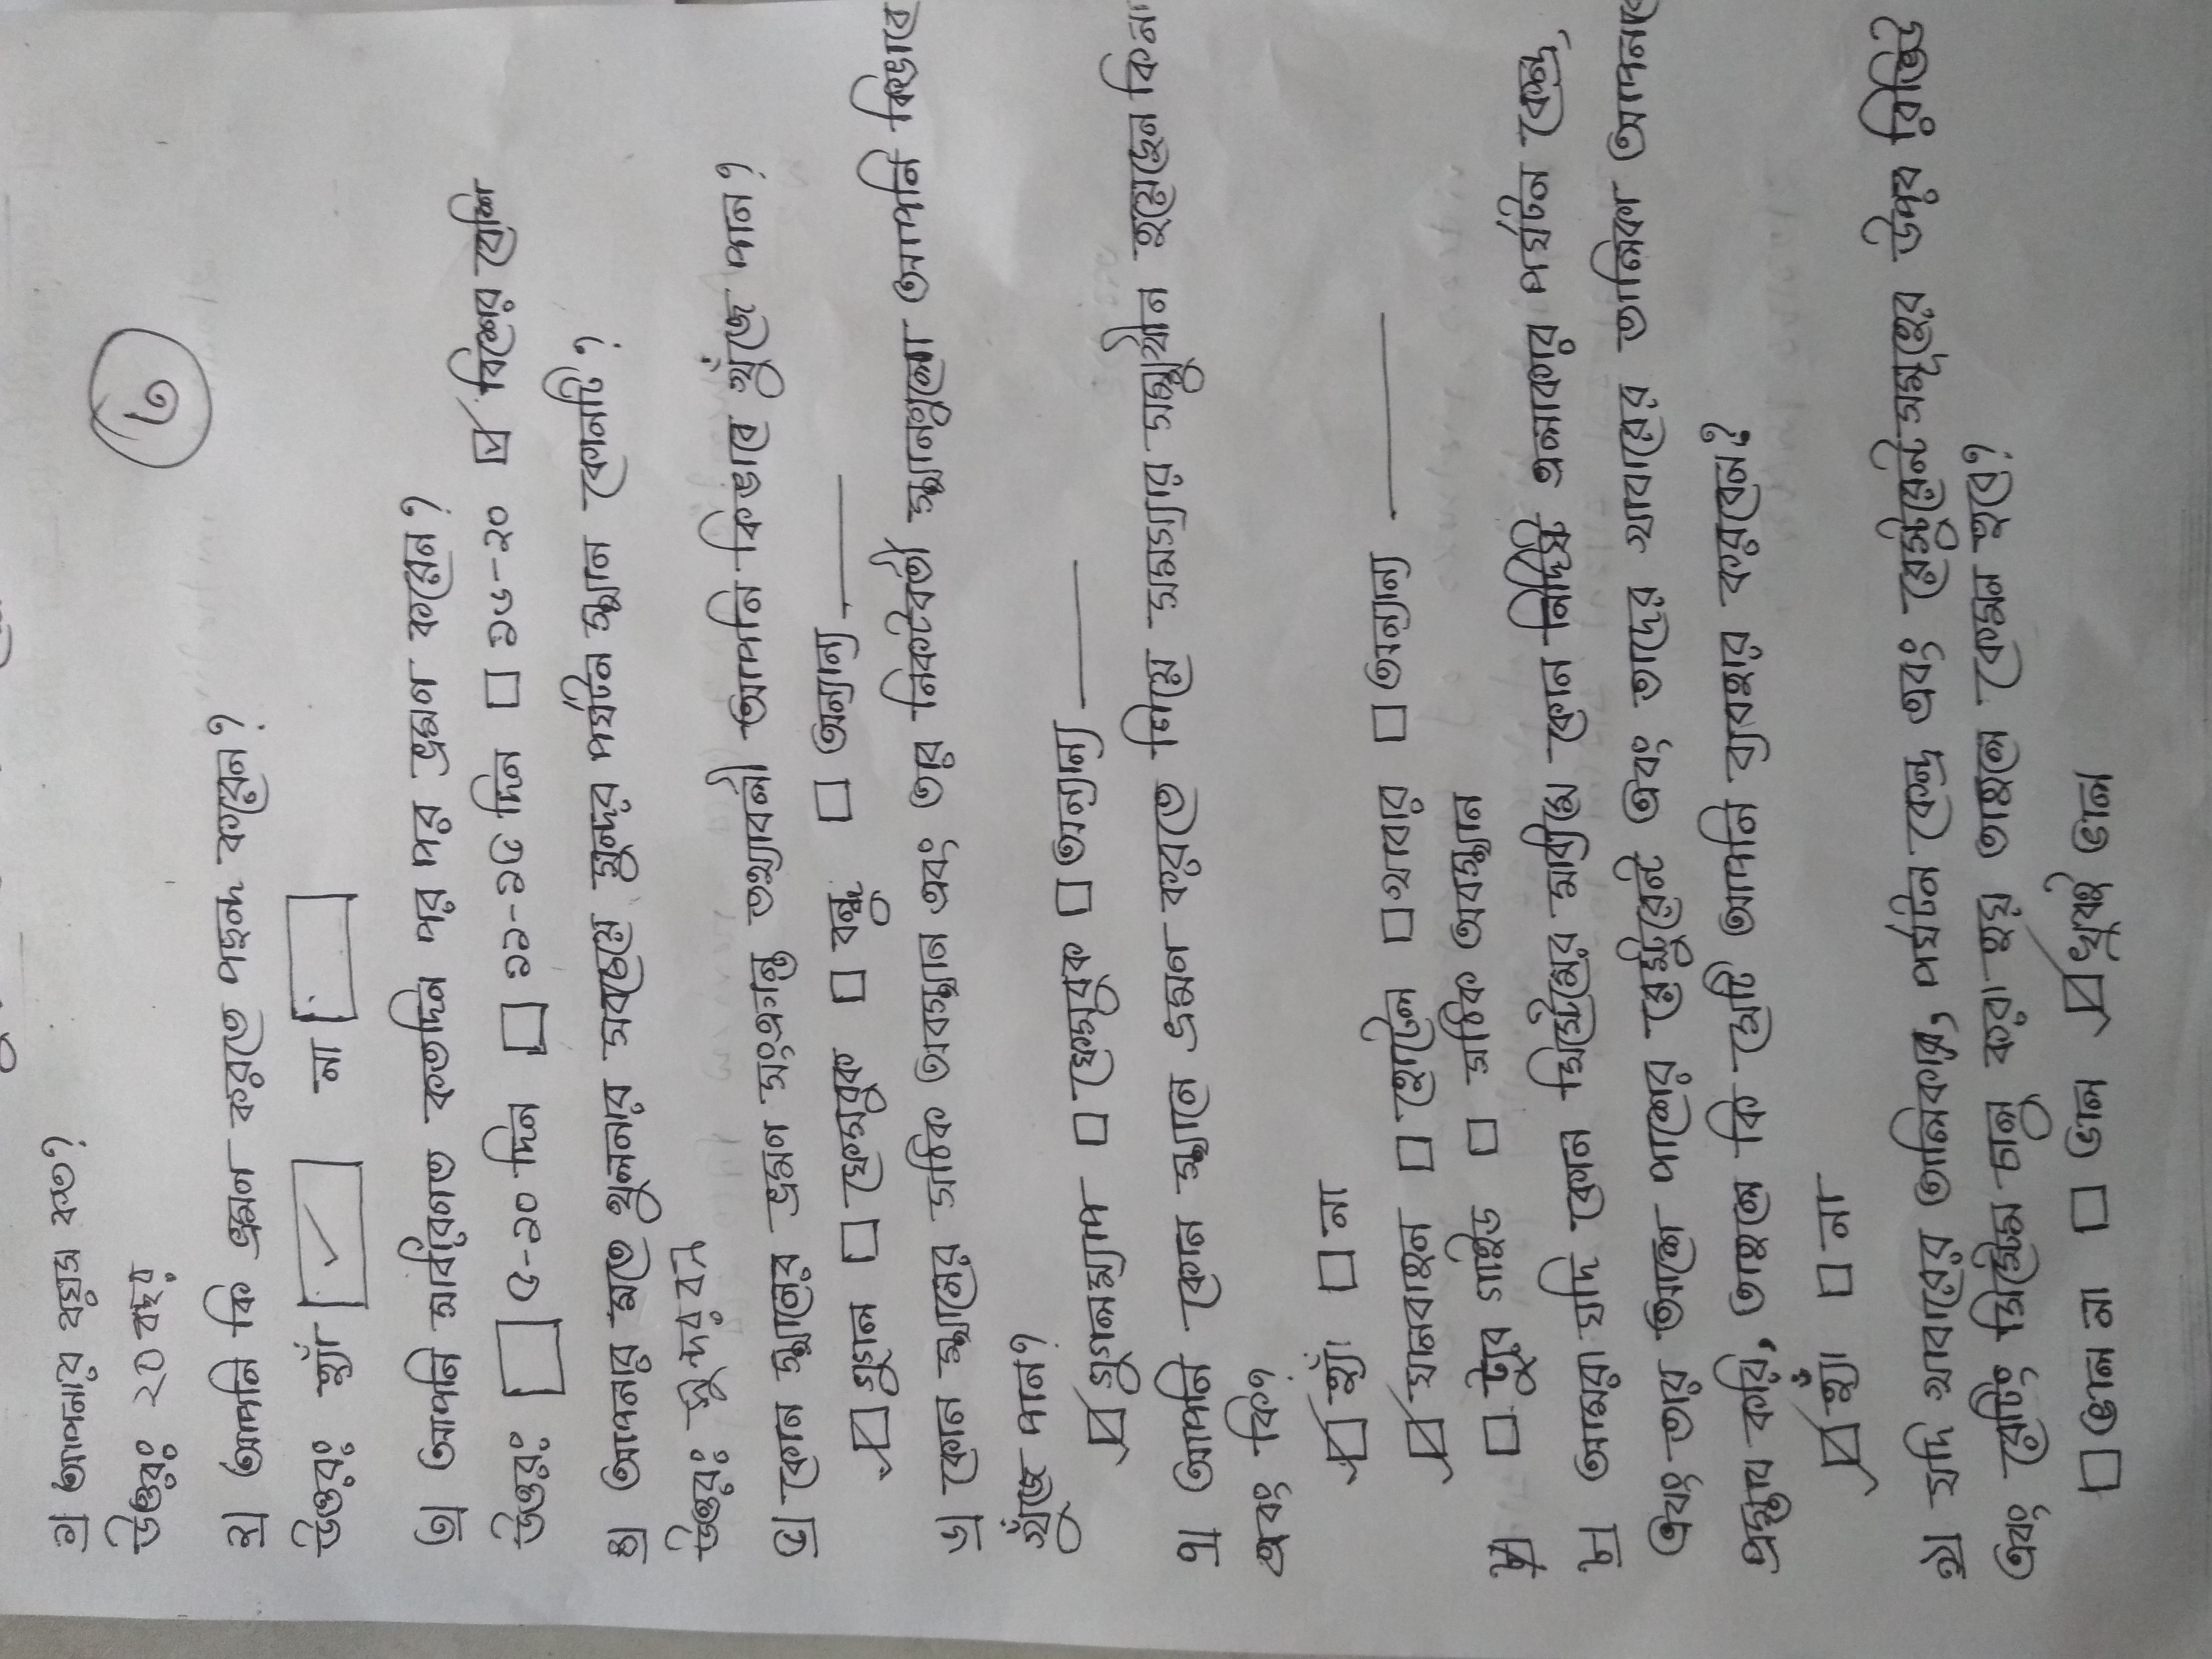 ১) আপনার বয়স কত?
৩
উত্তরঃ ২০ বছর
২) আপনি কি ভ্রমণ করতে পছন্দ করেন?
উত্তরঃ হ্যাঁ না
৩) আপনি সাধারণত কতদিন পর পর ভ্রমণ করেন?
উত্তরঃ ৫-১০ দিন ১১-১৫ দিন ১৬-২০ বিশের বেশি
৪) আপনার মতে খুলনার সবচেয়ে সুন্দর পর্যটন স্থান কোনটি?
উত্তরঃ সুন্দরবন
৫) কোন স্থানের ভ্রমণ সংক্রান্ত তথ্যাবলী আপনি কিভাবে খুঁজে পান?
গুগল ফেসবুক বন্ধু অন্যান্য
৬) কোন স্থানের সঠিক অবস্থান এবং তার নিকটবর্তী স্থানগুলো আপনি কিভাবে
খুঁজে পান?
গুগলম্যাপ ফেসবুক অন্যান্য
৭) আপনি কোন স্থানে ভ্রমণ করতে গিয়ে সমস্যার সম্মুখীন হয়েছেন কিনা
এবং কি?
হ্যাঁ না
যানবাহন হোটেল খাবার অন্যান্য
ট্যুর গাইড সঠিক অবস্থান
৮) আমরা যদি কোন সিস্টেমের মাধ্যমে কোন নির্দিষ্ট এলাকার পর্যটন কেন্দ্র,
এবং তার আশে পাশের রেস্টুরেন্ট এবং তাদের খাবারের তালিকা আপনাকে
প্রস্তাব করি, তাহলে কি সেটি আপনি ব্যবহার করবেন?
হ্যাঁ না
৯) যদি খাবারের তালিকার, পর্যটন কেন্দ্র এবং রেস্টুরেন্টসমূহের উপর রিভিউ
এবং রেটিং সিস্টেম চালু করা হয় তাহলে কেমন হবে?
ভাল না ভাল খুবই ভাল